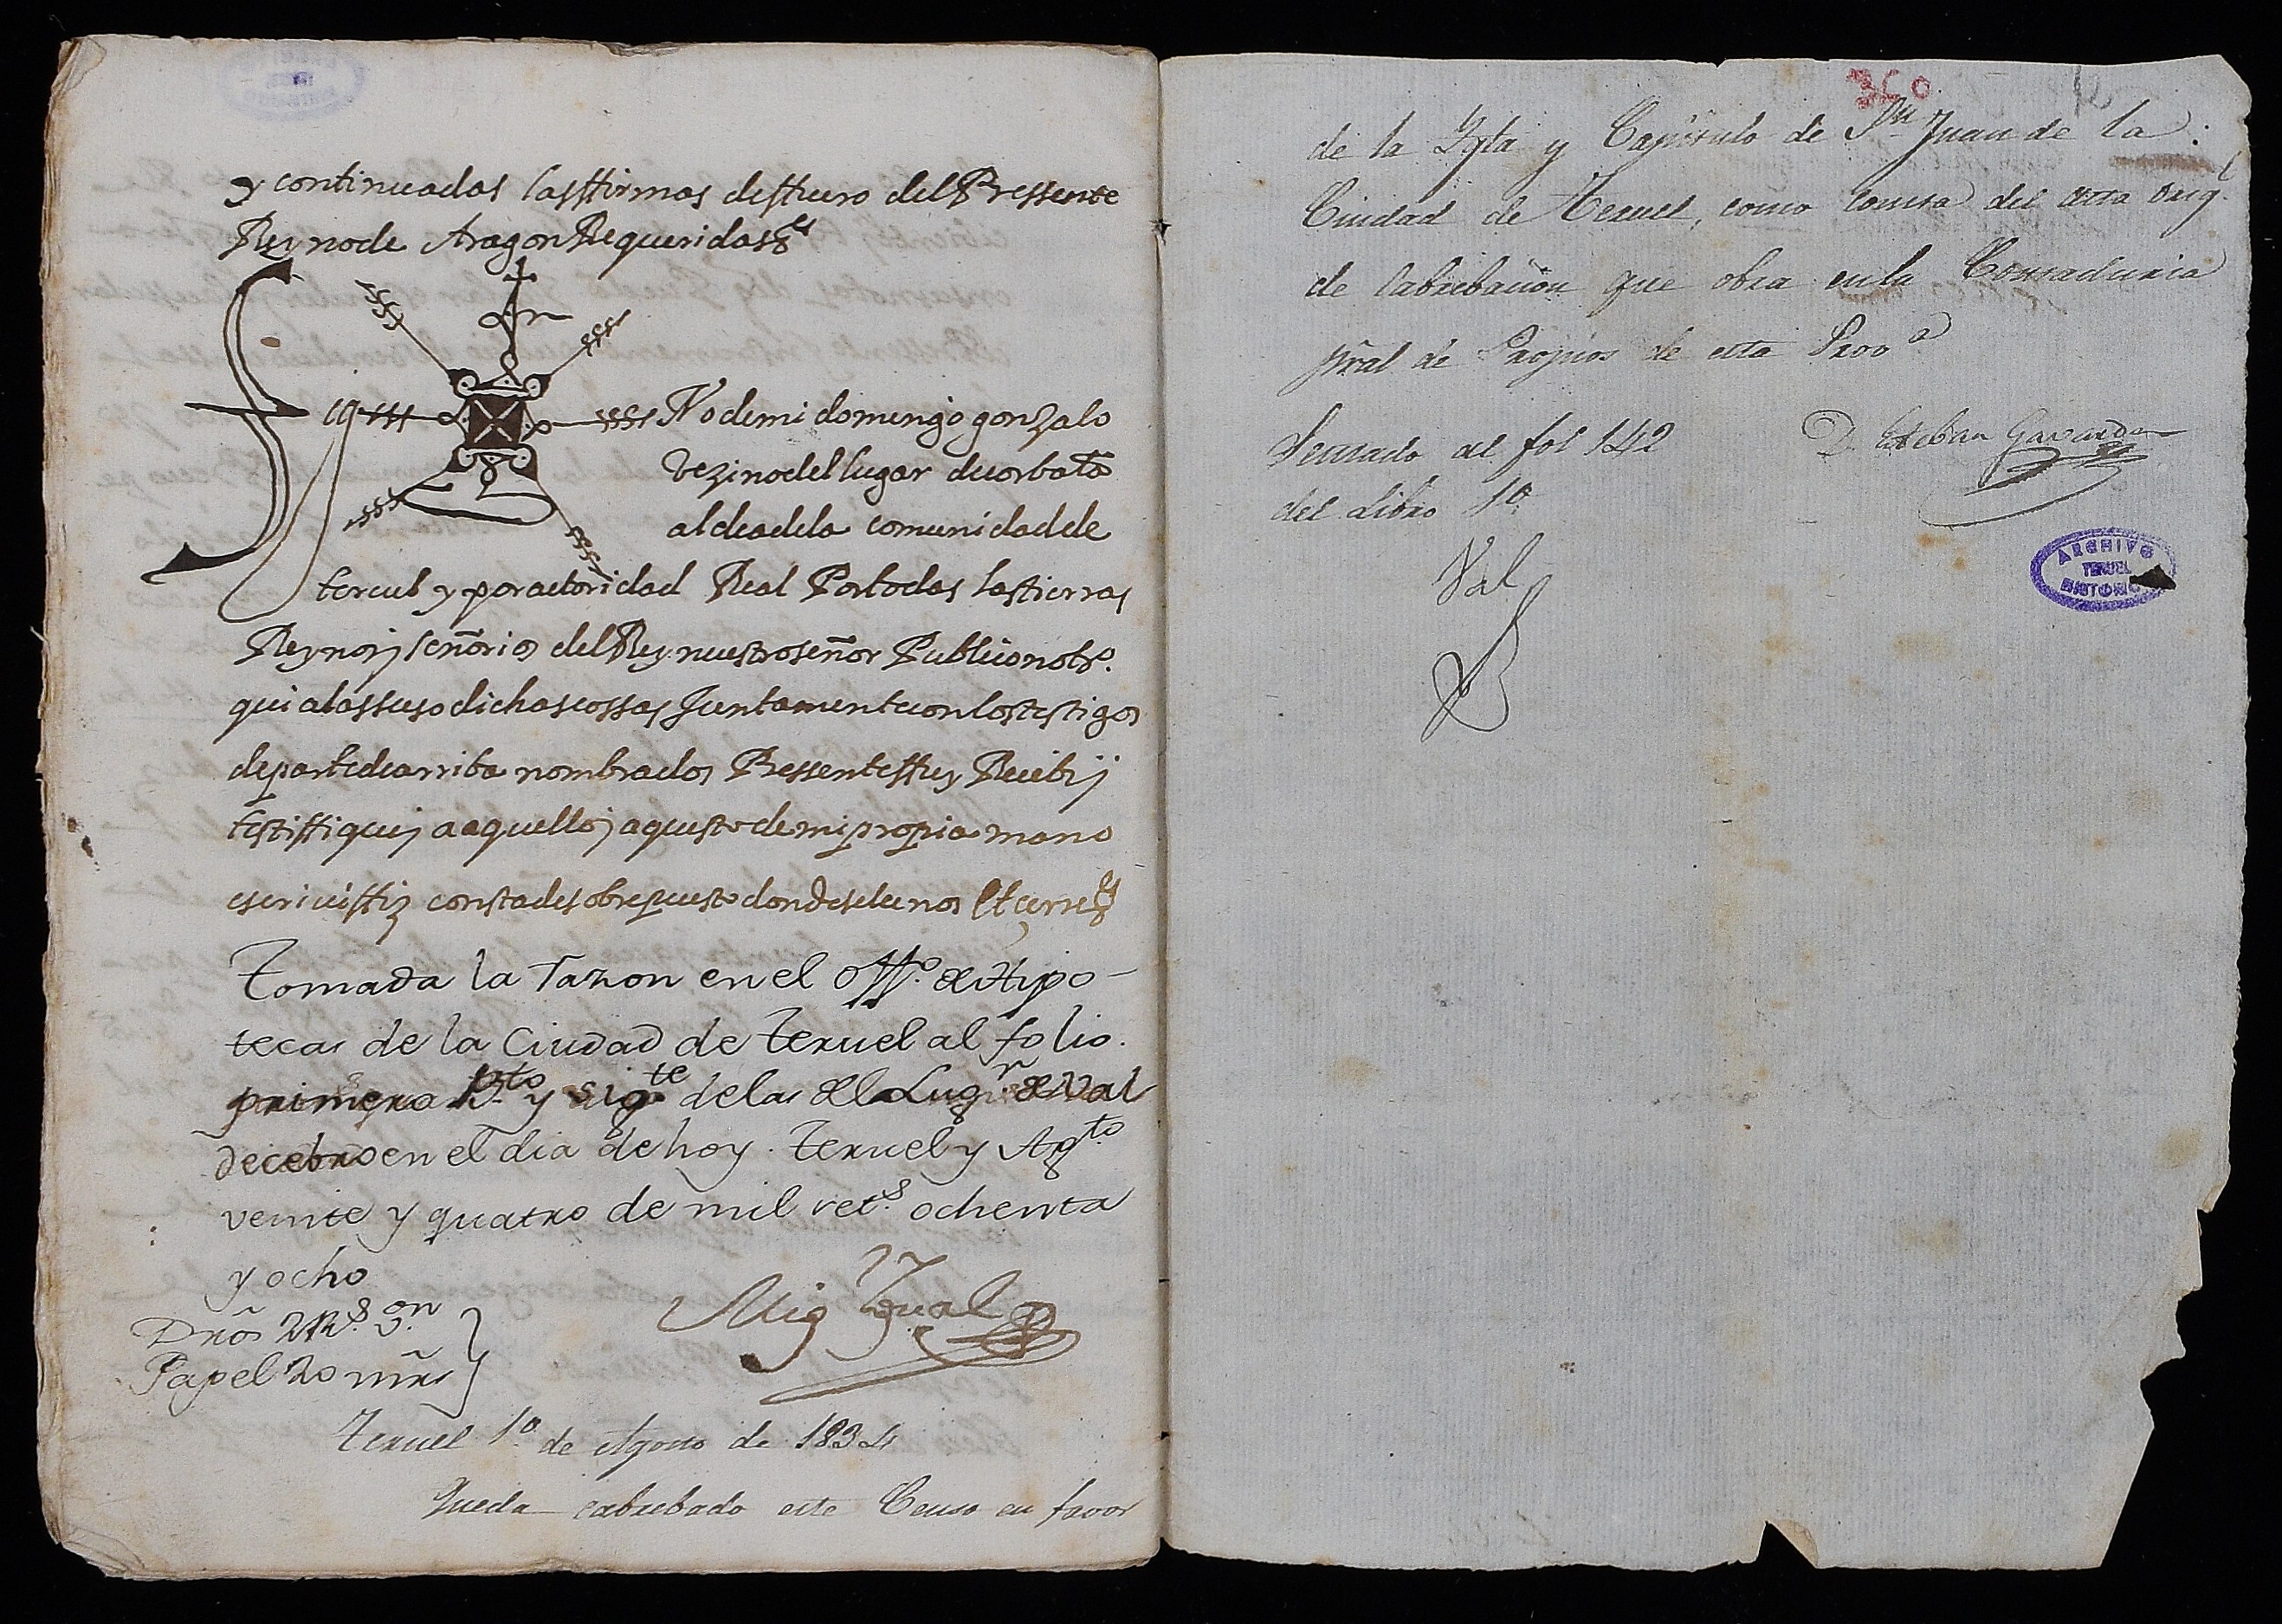 y continuadas las ffirmas de ffuero del Pressente
Reyno de Aragon Requeridas &c
Sig No de mi domingo gonzalo
vezino del lugar de corbatō
aldea de la comunidad de
teruel y por actoridad Real Por todas las tierras
Reynos y señorios del Rey nuestro señor Publico notrº.
qui a las suso dichas cossas Juntamente con los testigos
de parte de arriba nombrados Pressente ffuy Recibi y
testiffique y a aquello y aqueste de mi propia mano
escriui ffiz consta de sobrepuesto donde se lee nos Et cerre
Tomada la razon en el offº. de Hipo-
tecas de la Ciudad de Teruel al folio.
primero Bto y sigte de las del Lugr de Val
decebro en el dia de hoy. Teruel y Agto
veinte y quatro de mil sets. ochenta
y ocho
Dros 2 Rs. on
Papel 20 mrs
Mig Igual
Teruel 1º de Agosto de 1834
Queda cabrebado este Censo en favor
360
de la Ygla y Capitulo de Sn Juan de la
Ciudad de Teruel, como consta del acta origl
de Cabrebacion que obra en la Contaduria
pral de Propios de esta Prova
Sentado al fol 142
del Libro 1º
D. Esteban Gavarda
Val
ARCHIVO
TERUEL
HISTORICO